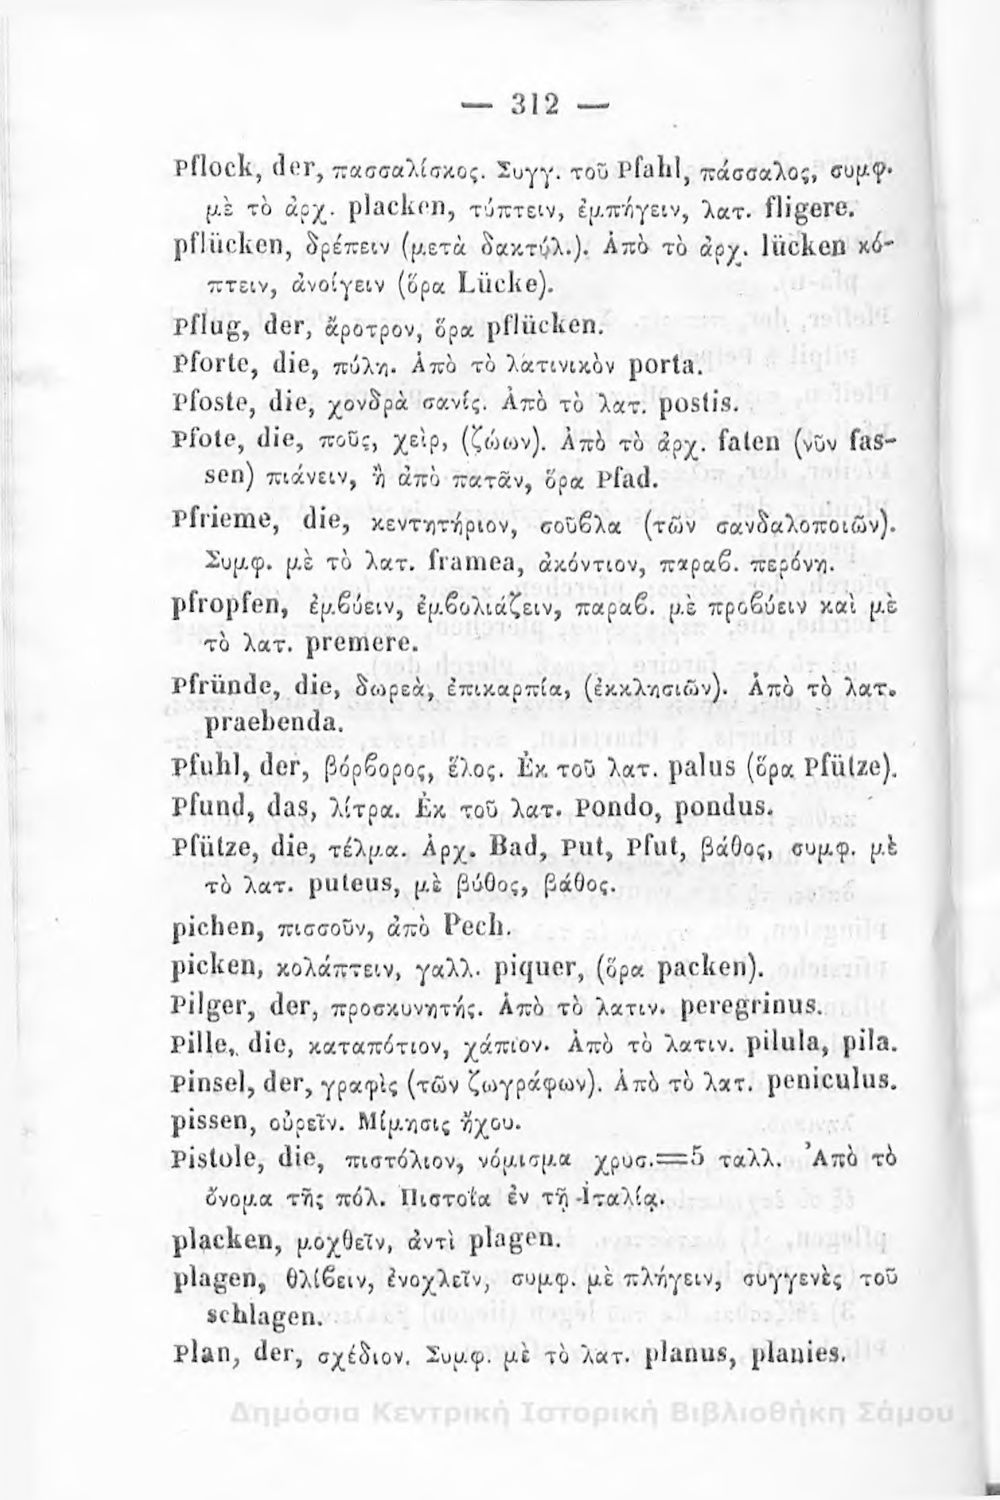 — 312 —
Pflock, der, πασσαλίσκος. Συγγ. τοῦ Pfahl, πάσσαλος, συμφ.
μὲ τὸ ἀρχ. placken, τύπτειν, ἐμπήγειν, λατ. fligere.
pflücken, δρέπειν (μετὰ δακτύλ.). Ἀπὸ τὸ ἀρχ. lücken κό-
πτειν, ἀνοίγειν (ὅρα Lücke).
Pflug, der, ἄροτρον, ὅρα pflücken.
Pforte, die, πύλη. Ἀπὸ τὸ λατινικὸν porta.
Pfoste, die, χονδρὰ σανίς. Ἀπὸ τὸ λατ. postis.
Pfote, die, ποῦς, χεὶρ, (ζώων). Ἀπὸ τὸ ἀρχ. faten (νῦν fas-
sen) πιάνειν, ἢ ἀπὸ πατᾶν, ὅρα Pfad.
Pfrieme, die, κεντητήριον, σοῦϐλα (τῶν σανδαλοποιῶν).
Συμφ. μὲ τὸ λατ. framea, ἀκόντιον, παραϐ. περόνη.
pfropfen, ἐμϐύειν, ἐμϐολιάζειν, παραϐ. μὲ προϐύειν καὶ μὲ
τὸ λατ. premere.
Pfründe, die, δωρεὰ, ἐπικαρπία, (ἐκκλησιῶν). Ἀπὸ τὸ λατ.
praebenda.
Pfuhl, der, βόρϐορος, ἕλος. Ἐκ τοῦ λατ. palus (ὅρα Pfütze).
Pfund, das, λίτρα. Ἐκ τοῦ λατ. Pondo, pondus.
Pfütze, die, τέλμα. Ἀρχ. Bad, Put, Pfut, βάθος, συμφ. μὲ
τὸ λατ. puteus, μὲ βύθος, βάθος.
pichen, πισσοῦν, ἀπὸ Pech.
picken, κολάπτειν, γαλλ. piquer, (ὅρα packen).
Pilger, der, προσκυνητής. Ἀπὸ τὸ λατιν. peregrinus.
Pille, die, καταπότιον, χάπιον. Ἀπὸ τὸ λατιν. pilula, pila.
Pinsel, der, γραφὶς (τῶν ζωγράφων). Ἀπὸ τὸ λατ. peniculus.
pissen, οὐρεῖν. Μίμησις ἤχου.
Pistole, die, πιστόλιον, νόμισμα χρυσ.=5 ταλλ. Ἀπὸ τὸ
ὄνομα τῆς πόλ. Πιστοΐα ἐν τῇ Ἰταλίᾳ.
placken, μοχθεῖν, ἀντὶ plagen.
plagen, θλίϐειν, ἐνοχλεῖν, συμφ. μὲ πλήγειν, συγγενὲς τοῦ
schlagen.
Plan, der, σχέδιον. Συμφ. μὲ τὸ λατ. planus, planies.
Δημόσια Κεντρική Ιστορική Βιβλιοθήκη Σάμου